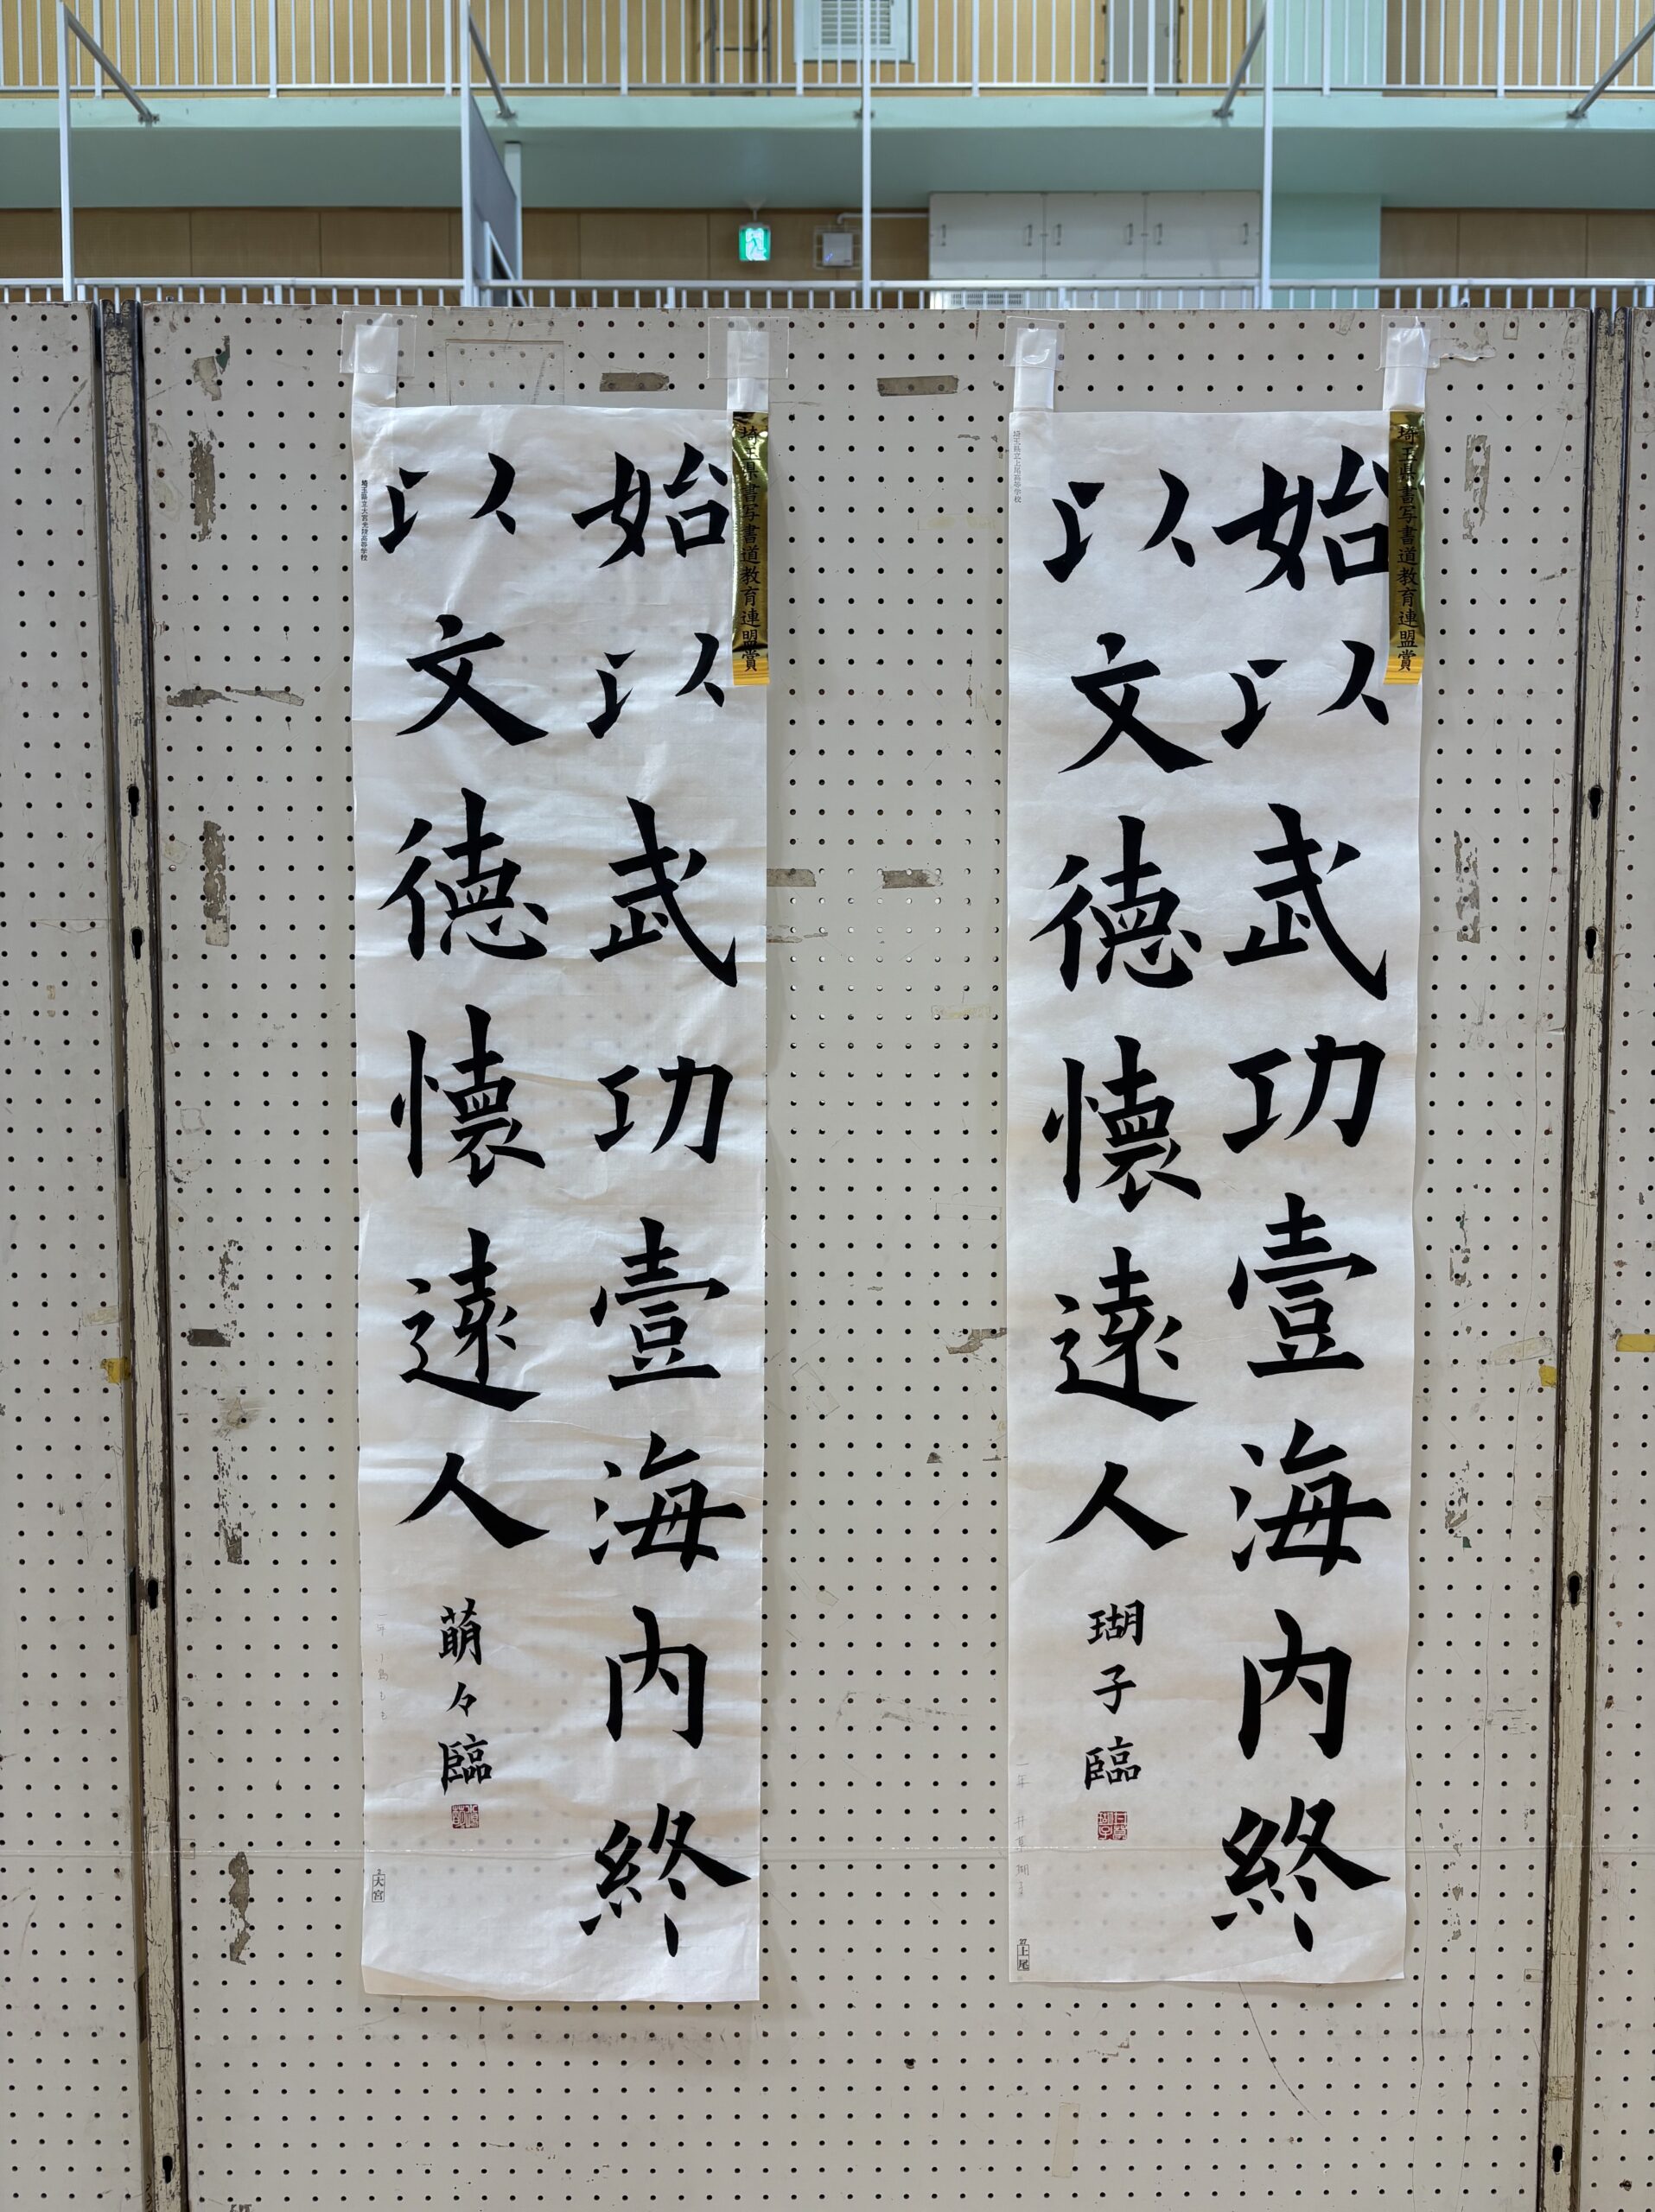 埼玉県書写書道教育連盟賞
始以武功壹海内終
以文德懷遠人
瑚子臨
埼玉県立上尾高等学校
上尾
埼玉県書写書道教育連盟賞
始以武功壹海内終
以文德懷遠人
萌々臨
埼玉県立大宮光陵高等学校
大宮